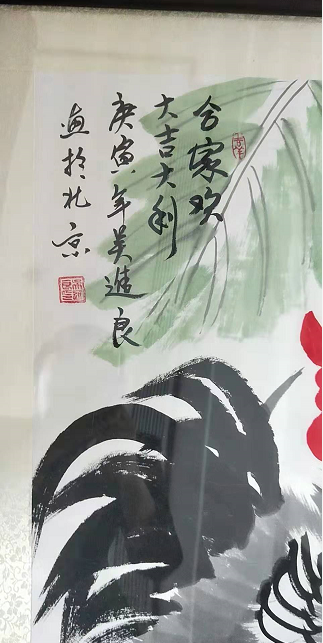 合家欢
大吉大利
庚寅年吴進良
画於北京